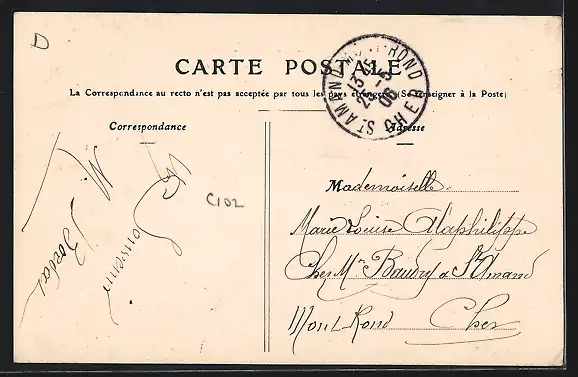 D
CARTE POSTALE
La Correspondance au recto n'est pas acceptée par tous les pays étrangers (Se renseigner à la Poste)
Correspondance
Adresse
ST AMAND MONT-ROND
13
25 - 5
06
CHER
C102
Souvenir
Mademoiselle
Marie Louise Alaphilippe
Chez Mr Baudry à St Amand
Mont-Rond Cher